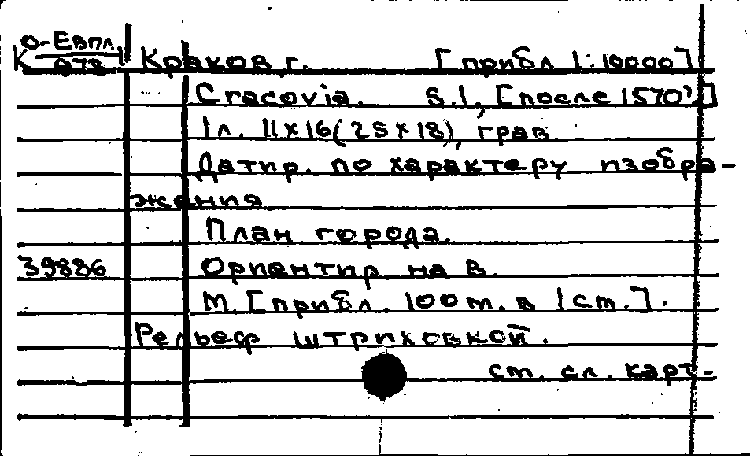 К О-Евпл/078 Краков, г. [прибл 1:10000]
Cracovia. S.l., [после 1570?]
1л. 11×16(25×18), грав.
Датир. по характеру изобра-
жения
План города.
39886 Ориентир на В.
М. [прибл. 100 м. в 1 см.].
Рельеф штриховкой.
см. сл. карт-